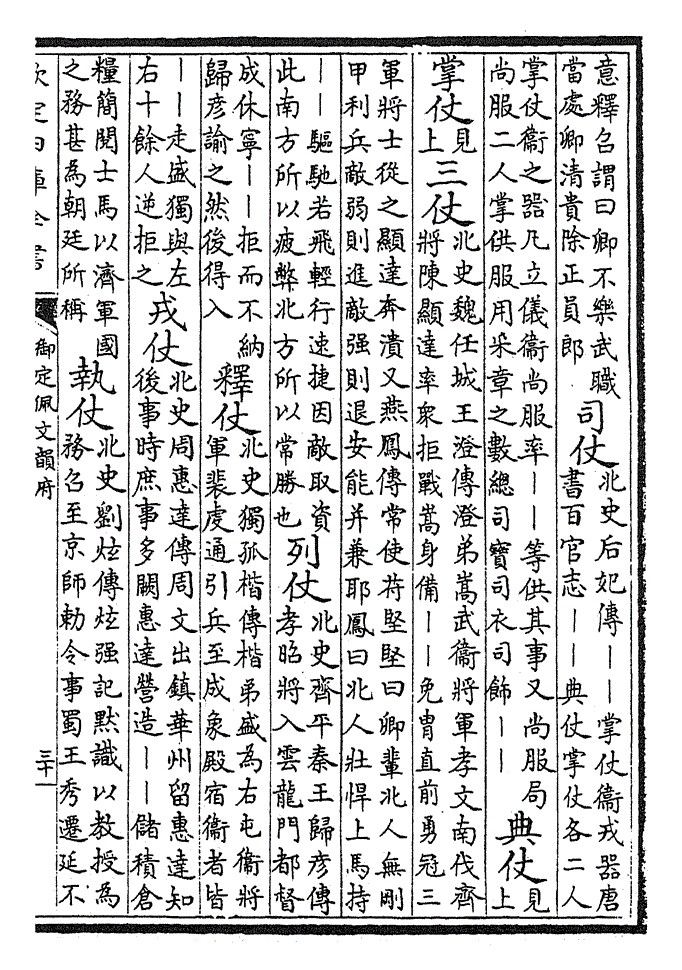 意釋召謂曰卿不樂武職
當處卿清貴除正員郎
司仗
北史后妃傳——掌仗衞戎器唐
書百官志——典仗掌仗各二人
掌仗衞之器凡立儀衞尚服率——等供其事又尚服局
尚服二人掌供服用采章之數總司寶司衣司飾——
典仗
見
上
掌仗
見
上
三仗
北史魏任城王澄傳澄弟嵩武衞將軍孝文南伐齊
將陳顯達率衆拒戰嵩身備——免胄直前勇冠三
軍將士從之顯達奔潰又燕鳳傳常使苻堅堅曰卿輩北人無剛
甲利兵敵弱則進敵强則退安能并兼耶鳳曰北人壯悍上馬持
——驅馳若飛輕行速捷因敵取資
此南方所以疲弊北方所以常勝也
列仗
北史齊平秦王歸彦傳
孝昭將入雲龍門都督
成休寧——拒而不納
歸彦諭之然後得入
釋仗
北史獨孤楷傳楷弟盛為右屯衞將
軍裴虔通引兵至成象殿宿衞者皆
——走盛獨與左
右十餘人逆拒之
戎仗
北史周惠達傳周文出鎮華州留惠達知
後事時庶事多闕惠達營造——儲積倉
糧簡閲士馬以濟軍國
之務甚為朝廷所稱
執仗
北史劉炫傳炫强記默識以教授為
務召至京師勅令事蜀王秀遷延不
欽定四庫全書
御定佩文韻府
三十一